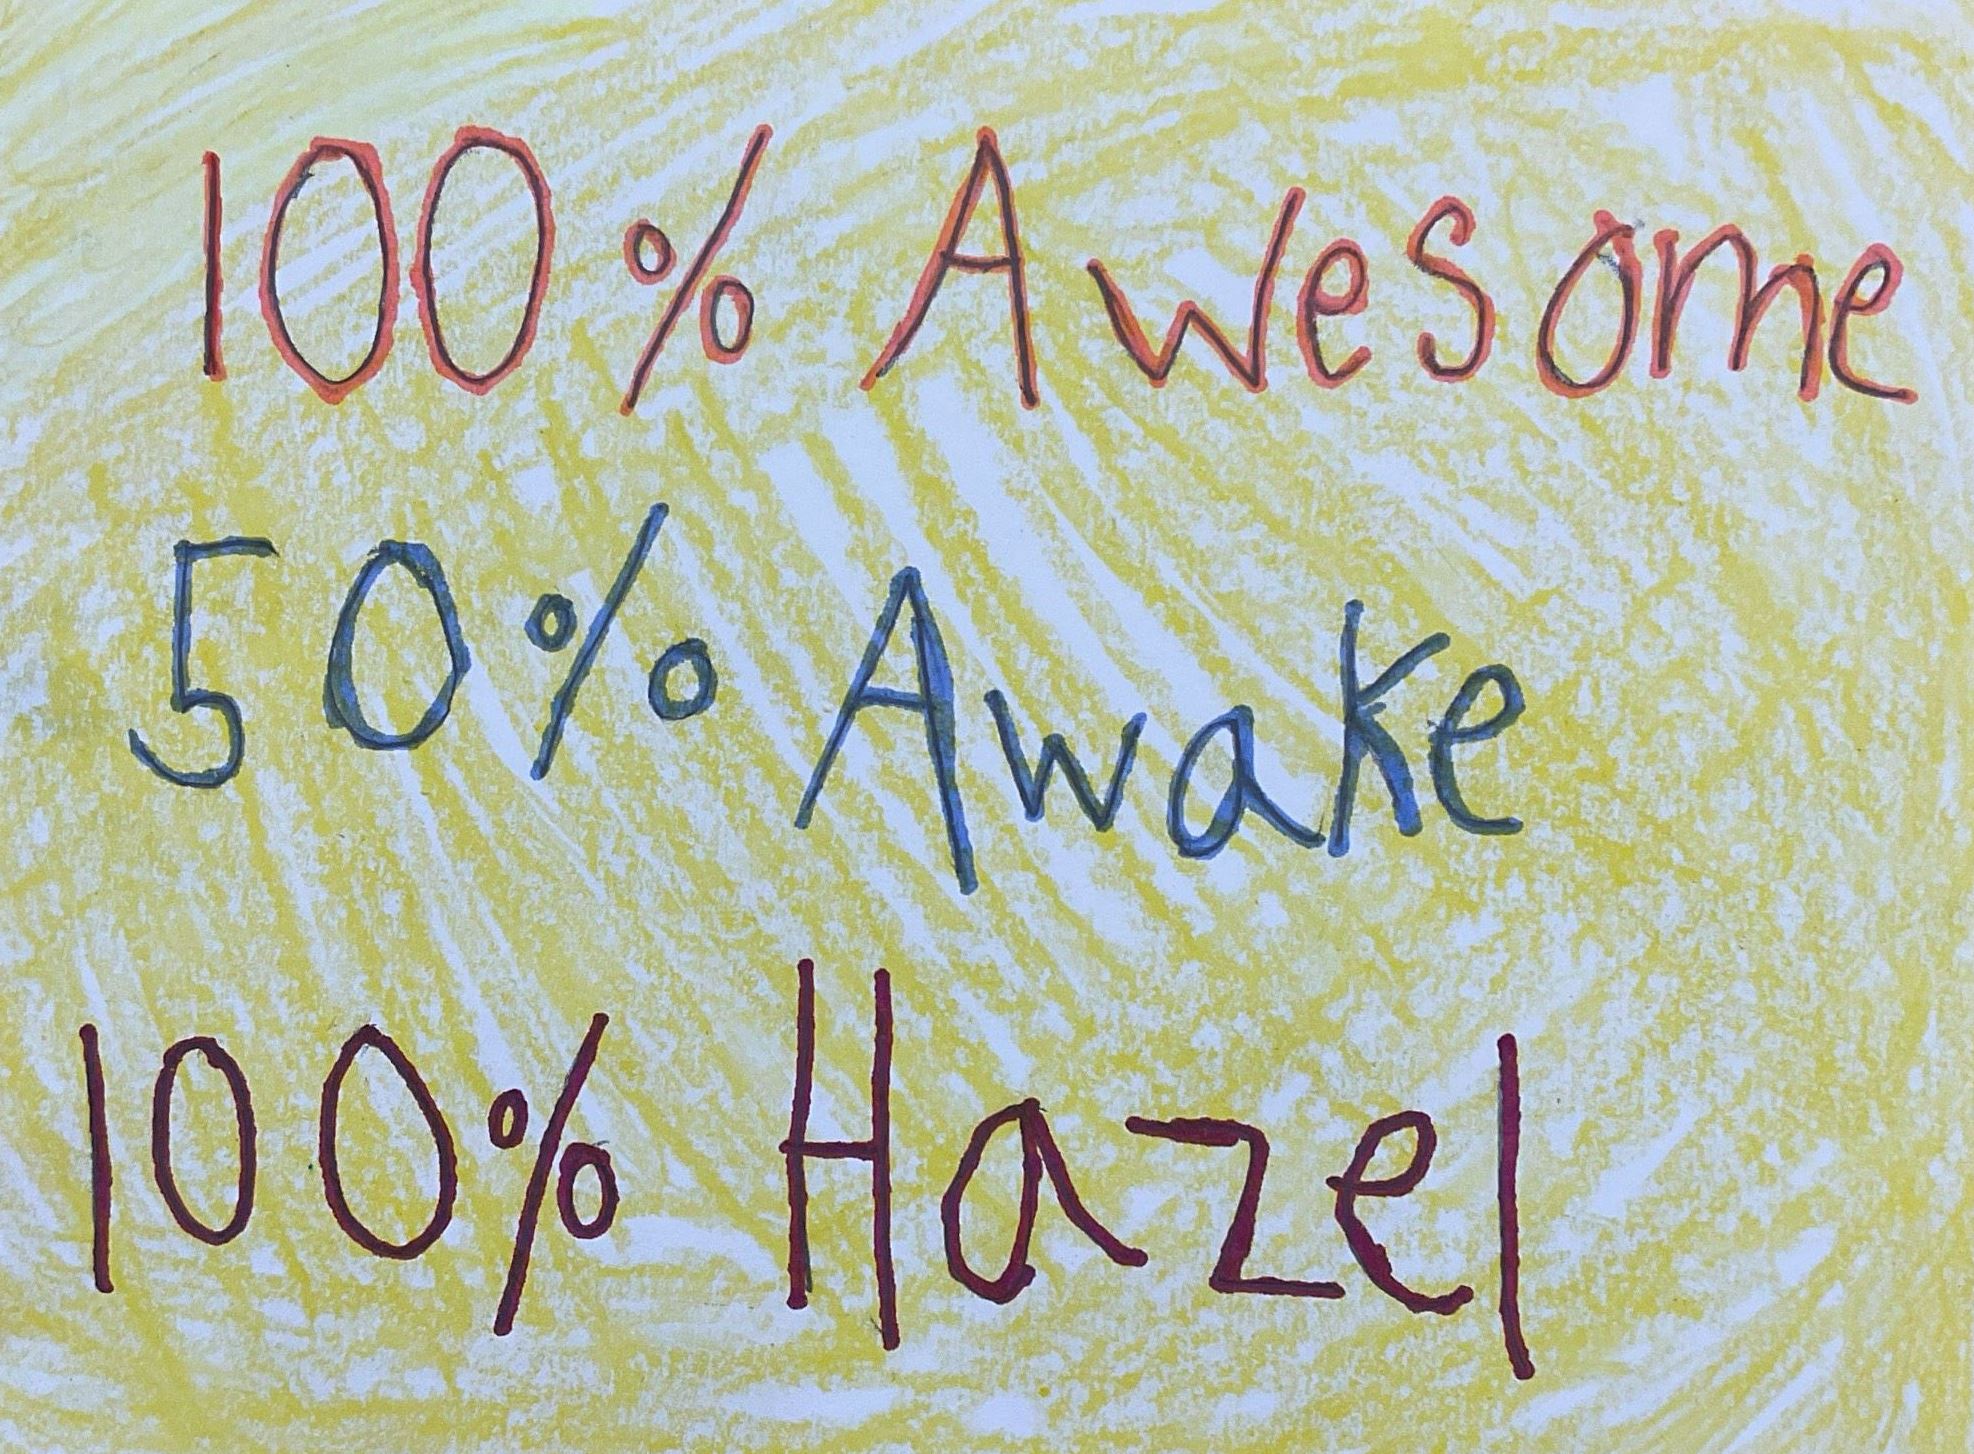 100% Awesome
50% Awake
100% Hazel